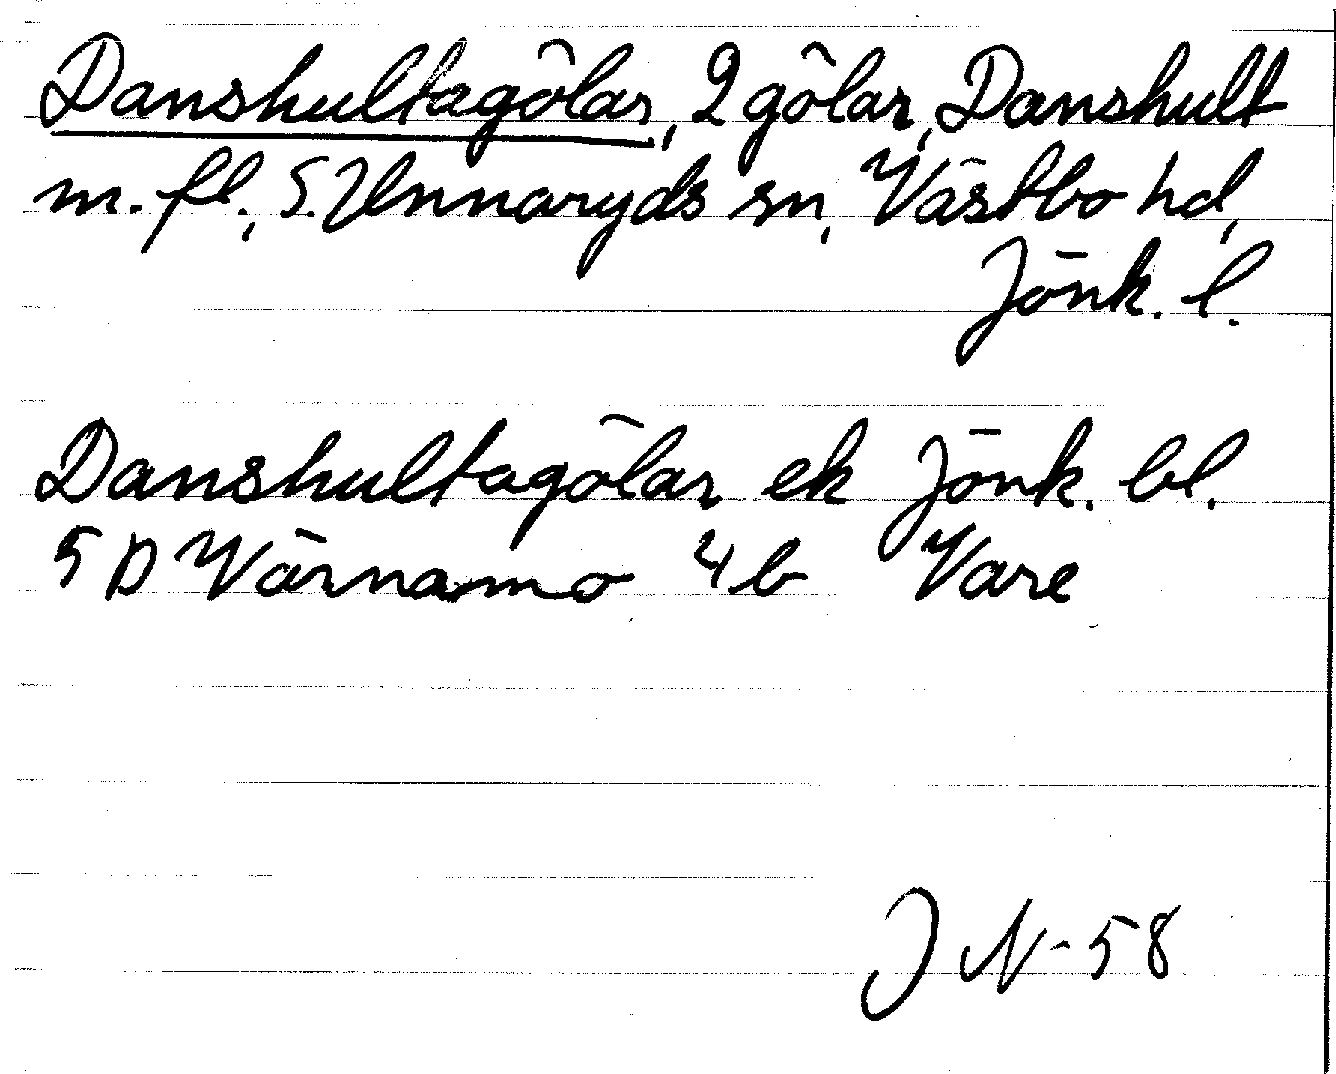 Danshultagölar, 2 gölar, Danshult
m. fl., S. Unnaryds sn, Västbo hd,
Jönk. l.
Danshultagölar ek Jönk. bl.
5 D Värnamo 4b Vare
J N-58